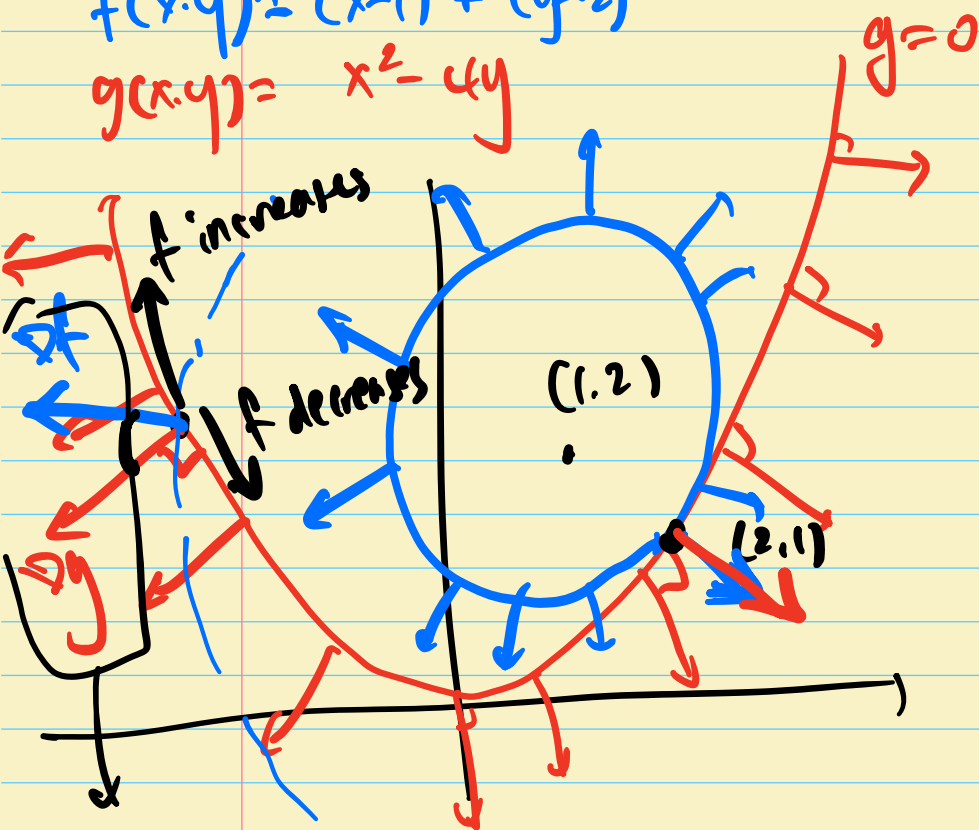 f(x.y) = (x-1)² + (y-2)²
g(x.y) = x² - 4y
g=0
f increases
∇f
f decreases
(1.2)
(2,1)
∇g